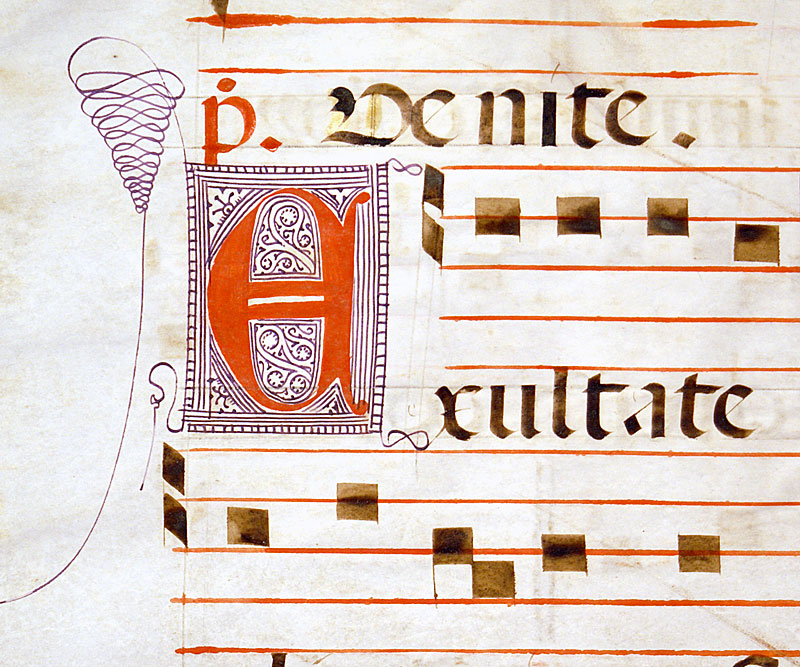 p̄. Venite.
Exultate